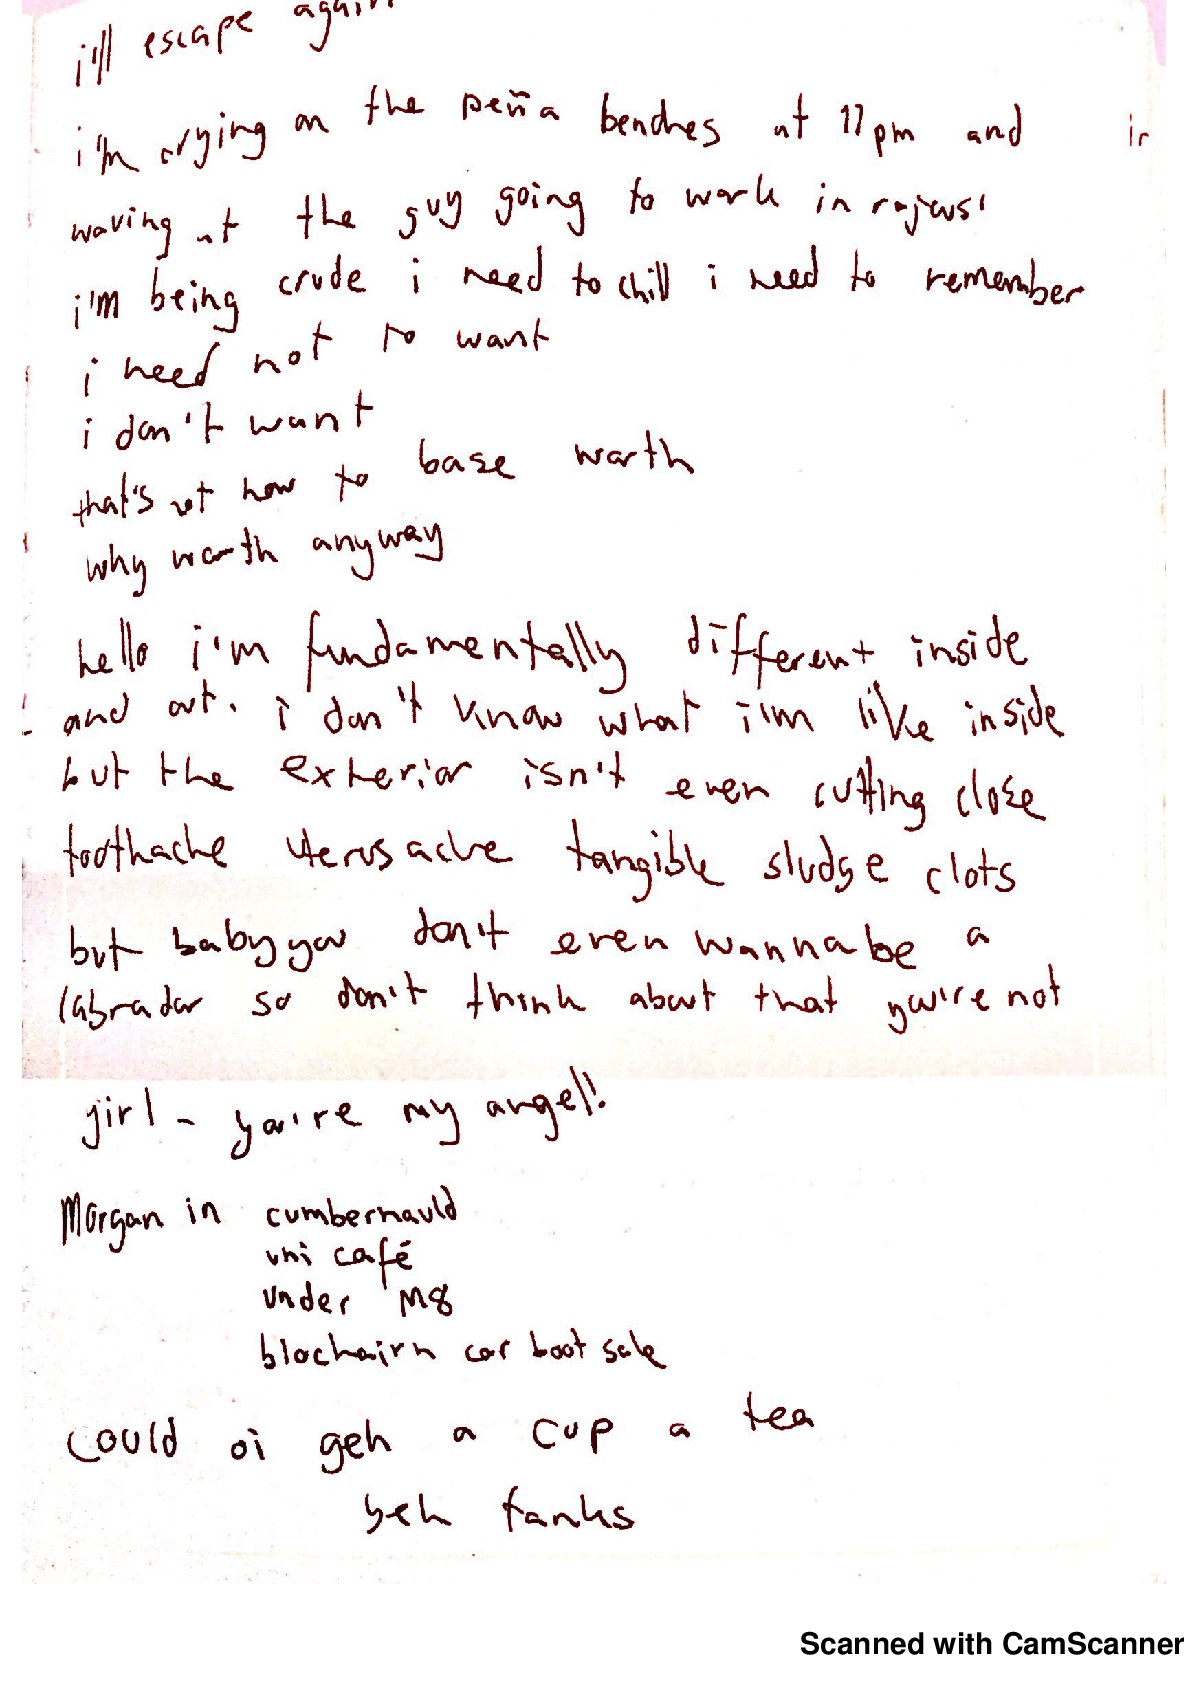 i'll escape again
i'm crying on the peña benches at 11pm and
waving at the guy going to work in
i'm being crude i need to chill i need to remember
i need not to want
i don't want
that's not how to base worth
why worth anyway
hello i'm fundamentally different inside
and out. i don't know what i'm like inside
but the exterior isn't even cutting close
toothache uterusache tangible sludge clots
but baby you don't even wanna be a
labrador so don't think about that you're not
girl - you're my angel!
Morgan in cumbernauld
uni café
under M8
blochairn car boot sale
could oi geh a cup a tea
yeh tanks
Scanned with CamScanner